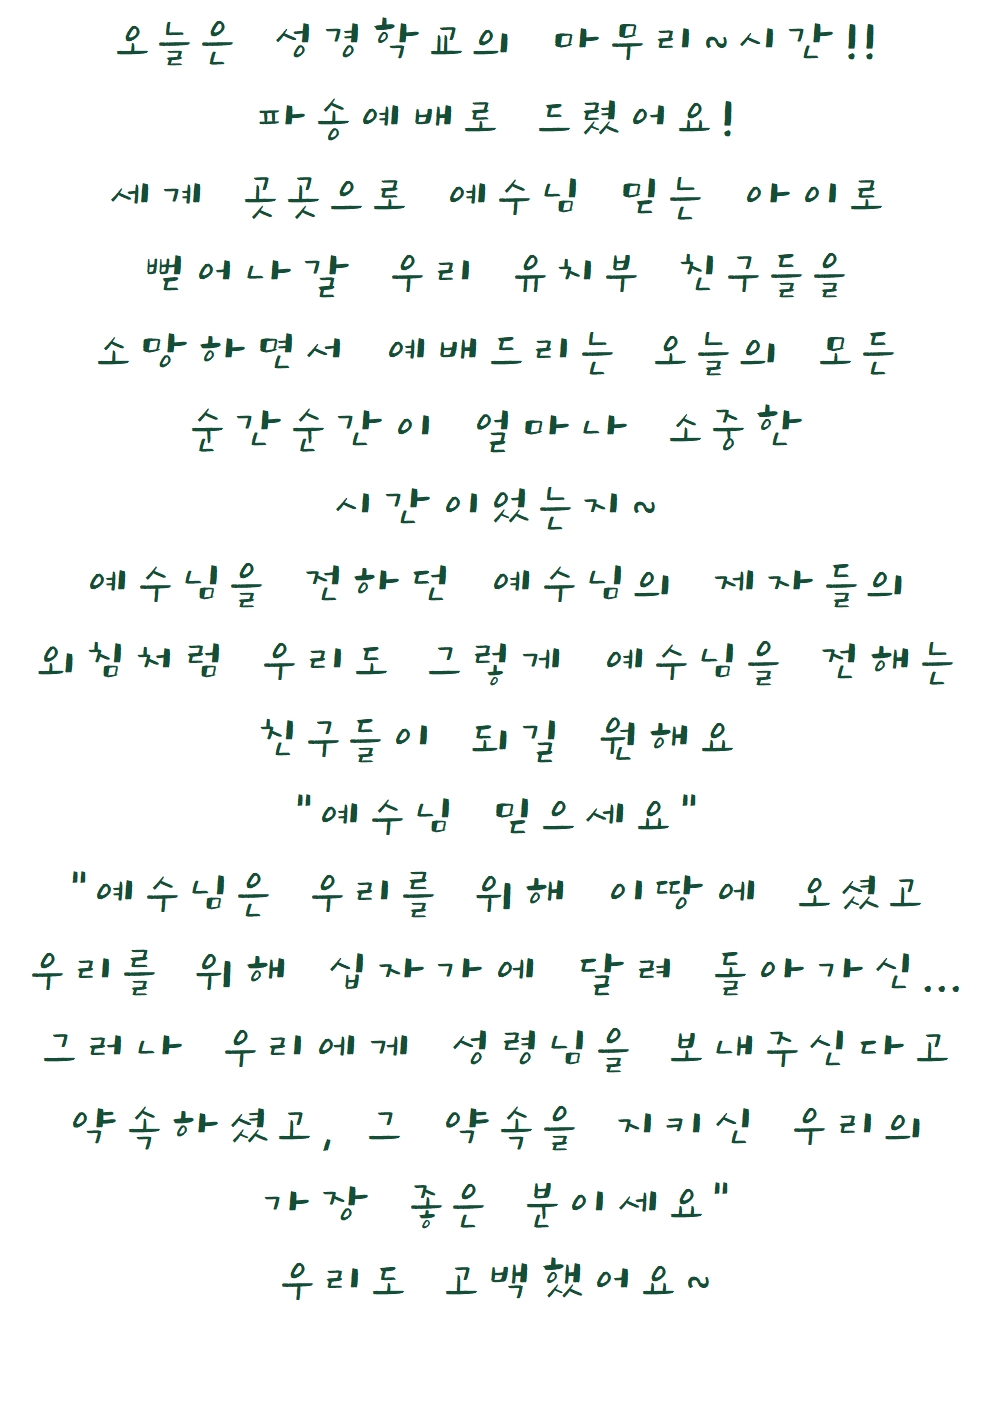 오늘은 성경학교의 마무리~시간!!
파송예배로 드렸어요!
세계 곳곳으로 예수님 믿는 아이로
뻗어나갈 우리 유치부 친구들을
소망하면서 예배드리는 오늘의 모든
순간순간이 얼마나 소중한
시간이었는지~
예수님을 전하던 예수님의 제자들의
외침처럼 우리도 그렇게 예수님을 전해는
친구들이 되길 원해요
"예수님 믿으세요"
"예수님은 우리를 위해 이땅에 오셨고
우리를 위해 십자가에 달려 돌아가신...
그러나 우리에게 성령님을 보내주신다고
약속하셨고, 그 약속을 지키신 우리의
가장 좋은 분이세요"
우리도 고백했어요~